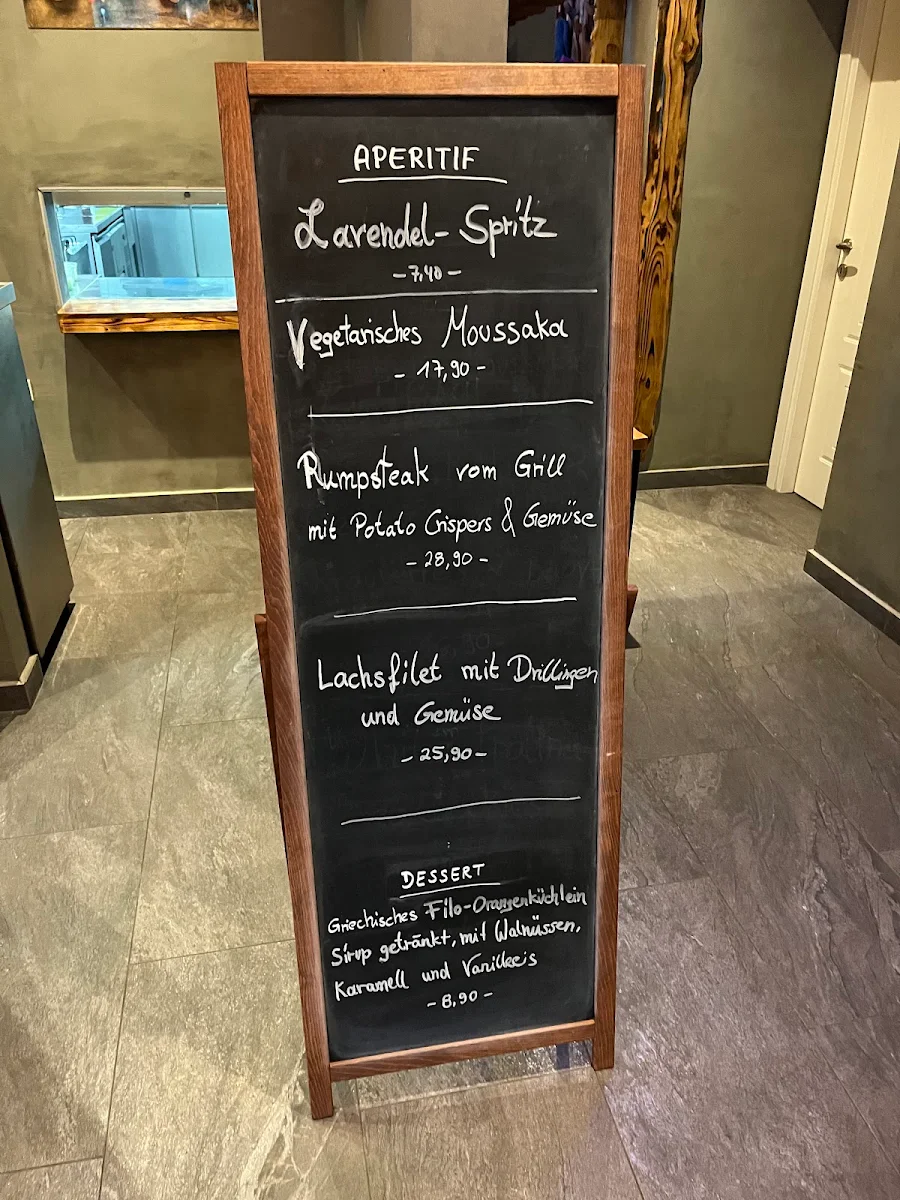 APERITIF
Lavendel-Spritz
-7,40-
Vegetarisches Moussaka
- 17,90 -
Rumpsteak vom Grill
mit Potato Crispers & Gemüse
- 28,90 -
Lachsfilet mit Drillingen
und Gemüse
- 25,90 -
DESSERT
Griechisches Filo-Orangenküchlein
Sirup getränkt, mit Walnüssen,
Karamell und Vanilleeis
- 8,90 -